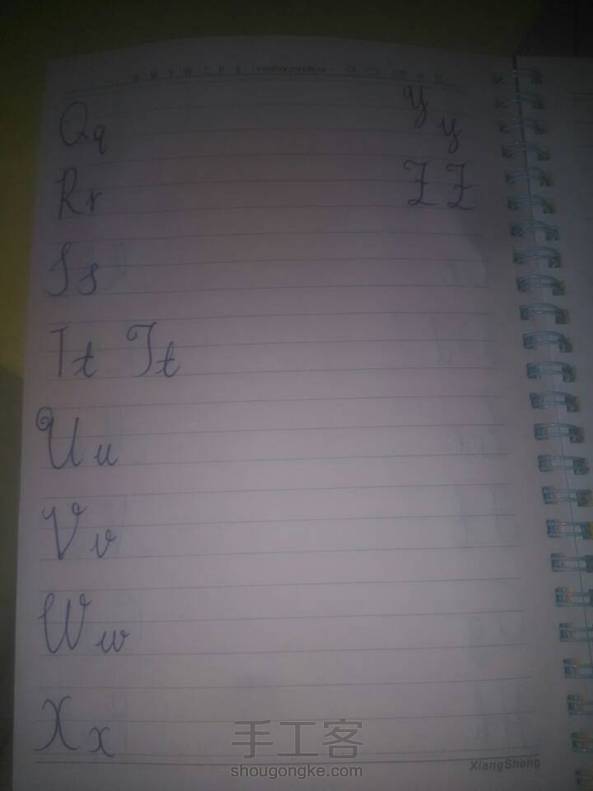 Qq
Yy
Rr
Zz
Ss
Tt Tt
Uu
Vv
Ww
Xx
手工客
shougongke.com
XiangSheng